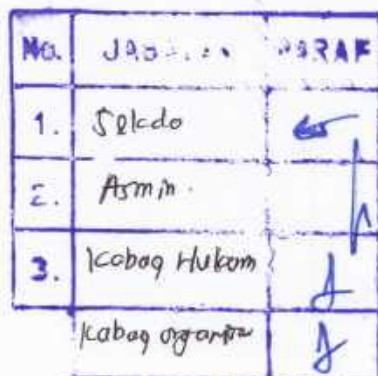 No. JABATAN PARAF
1. Sekda
2. Asmin.
3. Kabag Hukum
Kabag organisasi